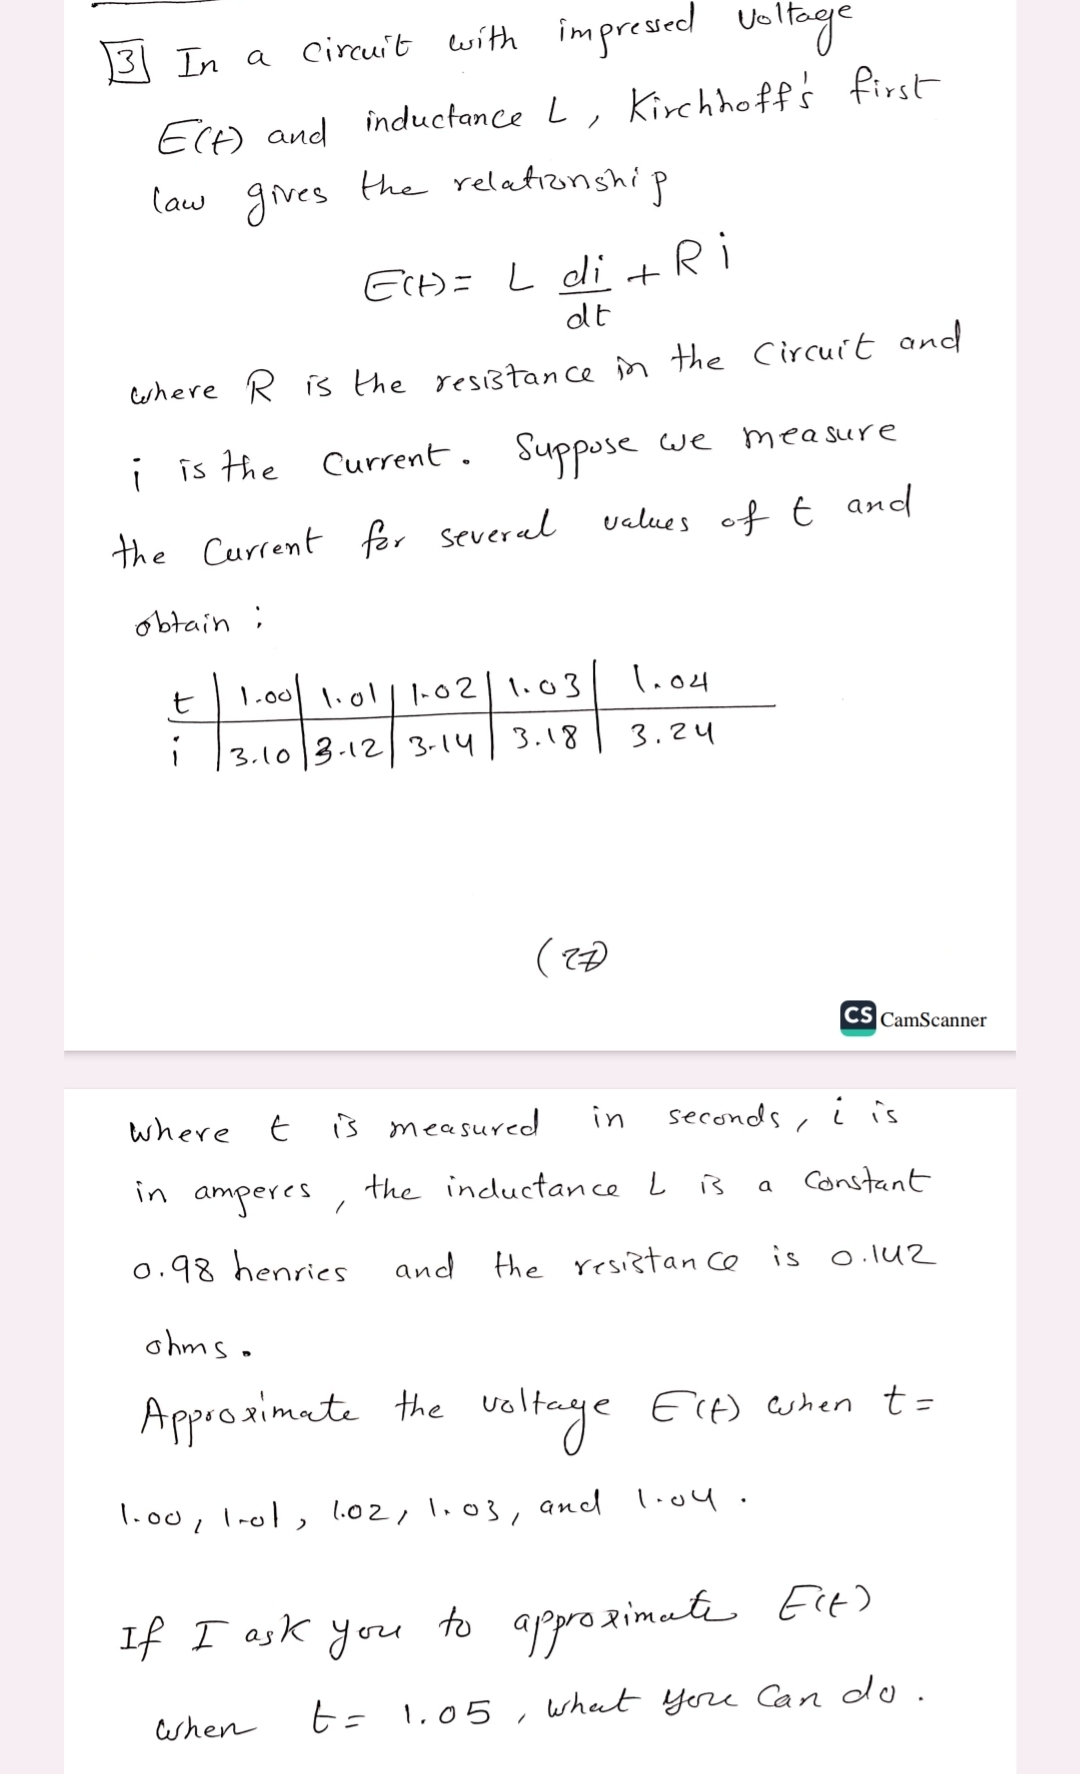 3 In a circuit with impressed voltage
E(t) and inductance L, Kirchhoff's first
law gives the relationship
E(t) = L di/dt + Ri
where R is the resistance in the circuit and
i is the current. Suppose we measure
the current for several values of t and
obtain :
t | 1.00 | 1.01 | 1.02 | 1.03 | 1.04
i | 3.10 | 3.12 | 3.14 | 3.18 | 3.24
(27)
CS CamScanner
where t is measured in seconds, i is
in amperes, the inductance L is a constant
0.98 henries and the resistance is 0.142
ohms.
Approximate the voltage E(t) when t =
1.00, 1.01, 1.02, 1.03, and 1.04.
If I ask you to approximate E(t)
when t = 1.05, what you can do.